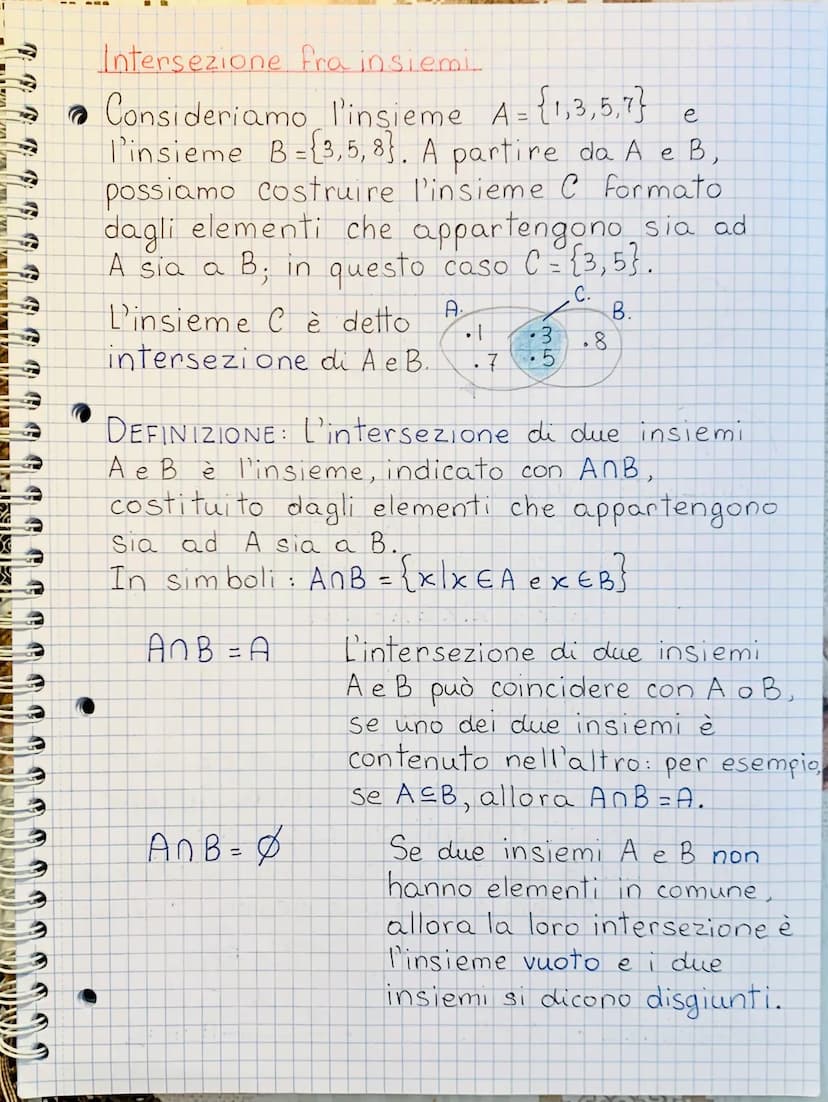 Intersezione fra insiemi
Consideriamo l'insieme A = {1,3,5,7} e
l'insieme B = {3,5,8}. A partire da A e B,
possiamo costruire l'insieme C formato
dagli elementi che appartengono sia ad
A sia a B; in questo caso C = {3,5}.
L'insieme C è detto
intersezione di A e B.
A. C. B.
.1 .3 .8
.7 .5
DEFINIZIONE: L'intersezione di due insiemi
A e B è l'insieme, indicato con A∩B,
costituito dagli elementi che appartengono
sia ad A sia a B.
In simboli: A∩B = {x|x ∈ A e x ∈ B}
A∩B = A
L'intersezione di due insiemi
A e B può coincidere con A o B,
se uno dei due insiemi è
contenuto nell'altro: per esempio,
se A⊆B, allora A∩B = A.
A∩B = ∅
Se due insiemi A e B non
hanno elementi in comune,
allora la loro intersezione è
l'insieme vuoto e i due
insiemi si dicono disgiunti.